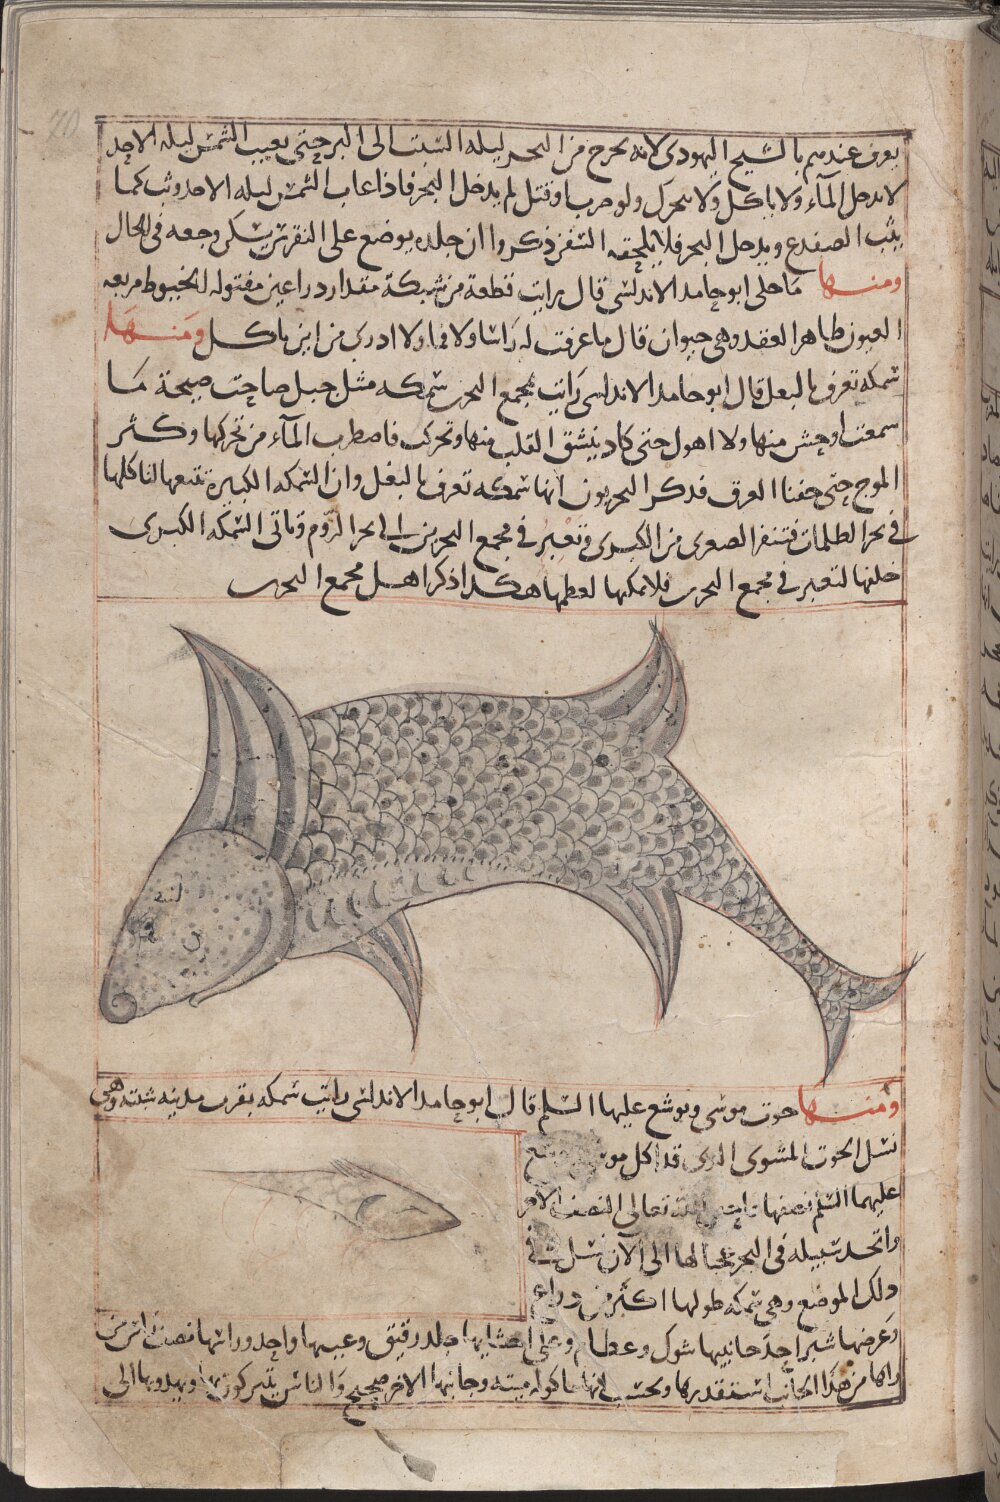 يعرف عندهم بالشيخ اليهودى لانه يخرج من البحر ليله السبت الى البر حتى يغيب الشمس ليله الاحد
لا يدخل المآء ولا ياكل ولا يتحرك ولو ضرب او قتل لم يدخل البحر فاذا غاب الشمس ليله الاحد وثب كما
يثب الضفدع ويدخل البحر فلا يلحقه السفن ذكروا ان جلده يوضع على النقرس يسكن وجعه فى الحال
ومنها ما حكى ابو حامد الاندلسى قال رايت قطعة من شبكة مقدار ذراعين مفتوله الخيوط مربعه
العيون ظاهر العقد وهى حيوان قال ما عرفت له راسا ولا فما ولا ادرى من اين ياكل ومنها
سمكه تعرف بالبغل قال ابو حامد الاندلسى رايت بمجمع البحرين سمكه مثل جبل صاحت صيحة ما
سمعت اوحش منها ولا اهول حتى كاد ينشق القلب منها وتحركت فاضطرب المآء من تحركها وكثر
الموج حتى خفنا الغرق فذكر البحريون انها سمكه تعرف بالبغل وان السمكه الكبيرة تتبعها لتاكلها
فى بحر الظلمات فتنفر الصغرى من الكبرى وتعبر فى مجمع البحرين الى بحر الروم وتاتى السمكه الكبرى
خلفها لتعبر فى مجمع البحرين فلا يمكنها لعظمها هكذا ذكر اهل مجمع البحرين
ومنها حوت موسى ويوشع عليهما السلم قال ابو حامد الاندلسى رايت سمكه بقرب مدينه سبته وهى
نسل الحوت المشوى الذى قد اكل موسى
عليهما السلم نصفها تعالى النصف الاخر
واتخذ سبيله فى البحر عجبا لها الى الآن نسل فى
ذلك الموضع وهى سمكه طولها اكثر من ذراع
وعرضها شبر احد جانبيها شوك وعظام وعلى احشايها جلد رقيق وعينها واحد وراسها نصف راس من
راها من هذا الجانب استقذرها ويحسب انها ماكوله ميته وجانبها الاخر صحيح والناس يتبركون بها ويهدونها الى